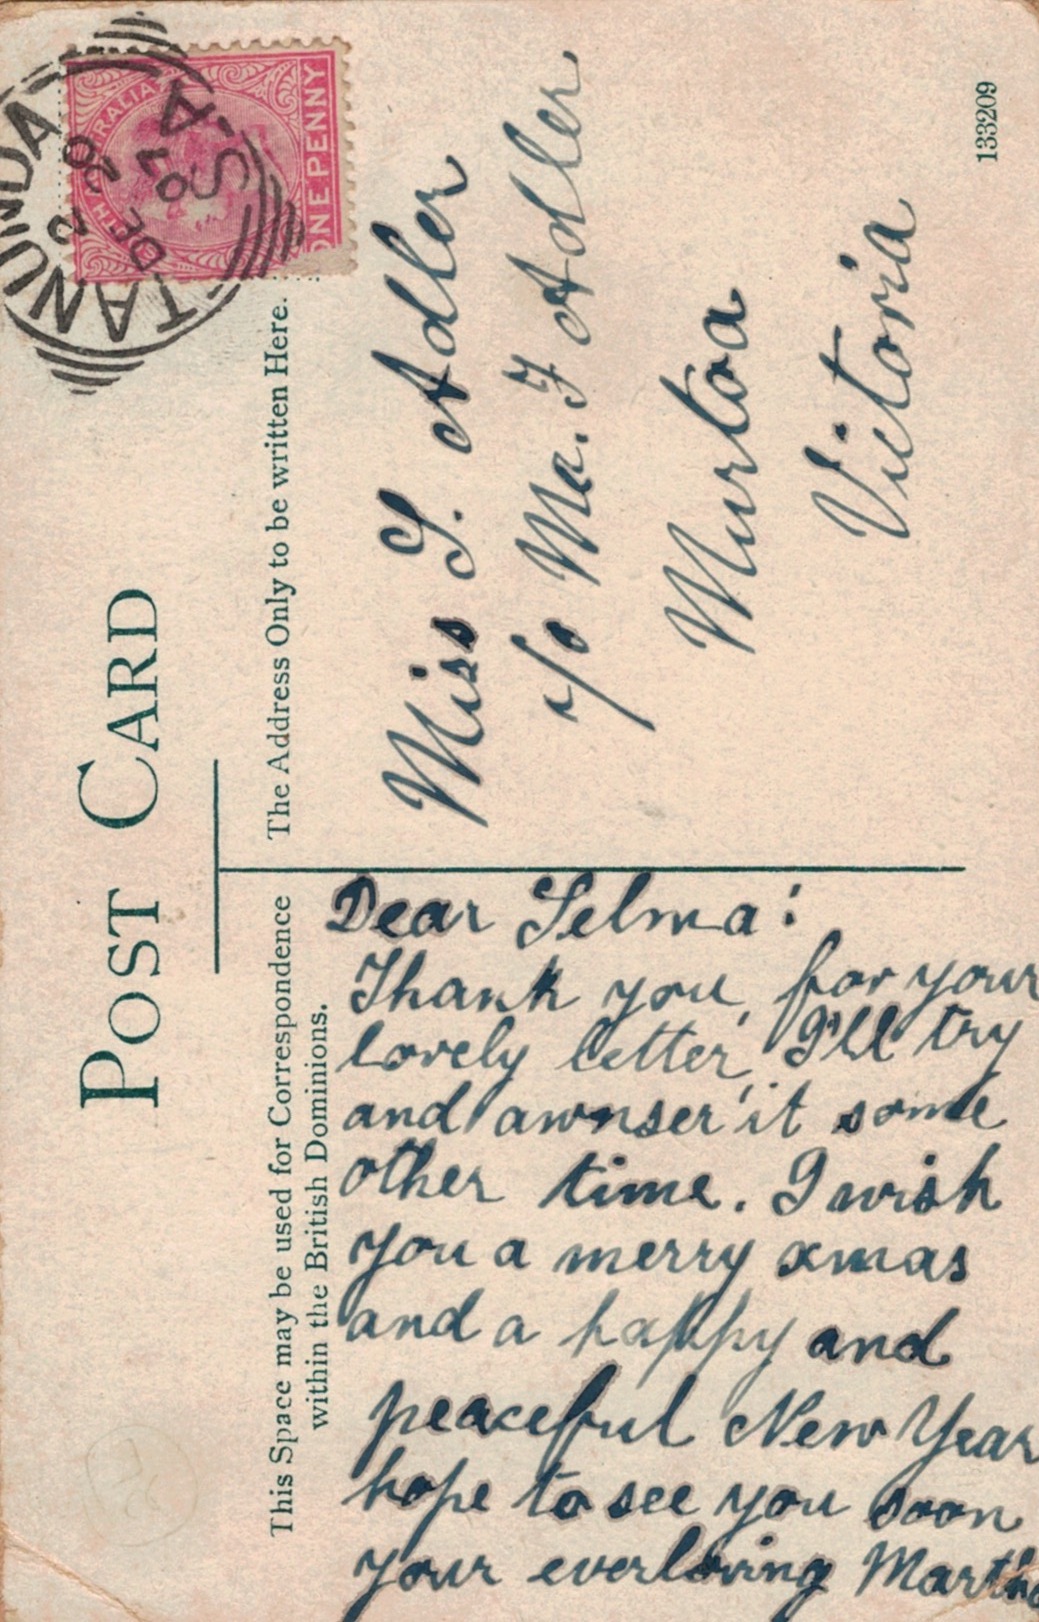 POST CARD
This Space may be used for Correspondence
within the British Dominions.
The Address Only to be written Here.
TANUNDA
S-A
2
DE 20
07
SOUTH AUSTRALIA
ONE PENNY
Miss S. Adler
c/o Ma. F Adler
Murtoa
Victoria
133209
Dear Selma:
Thank you, for your
lovely letter, I'll try
and awnser it some
other time. I wish
you a merry xmas
and a happy and
peaceful New Year
hope to see you soon
your everloving Martha